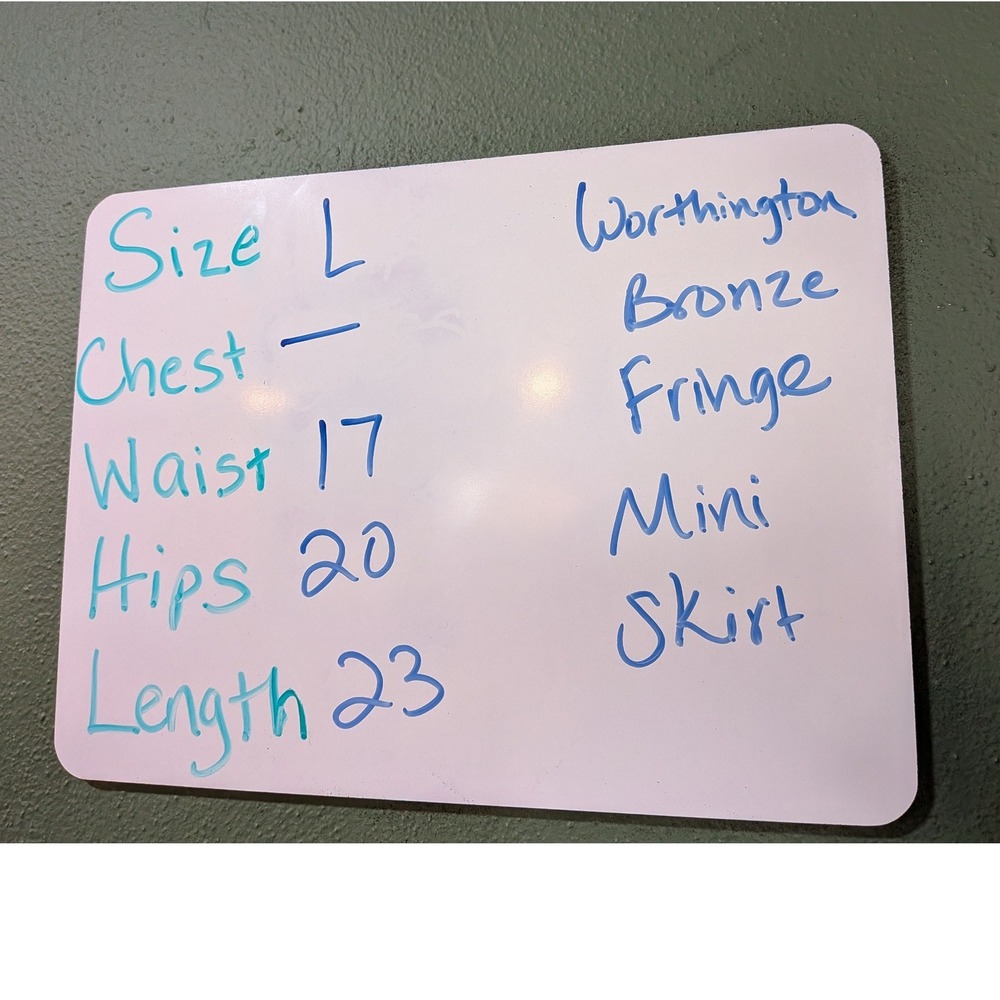 Size L
Chest —
Waist 17
Hips 20
Length 23
Worthington
Bronze
Fringe
Mini
Skirt